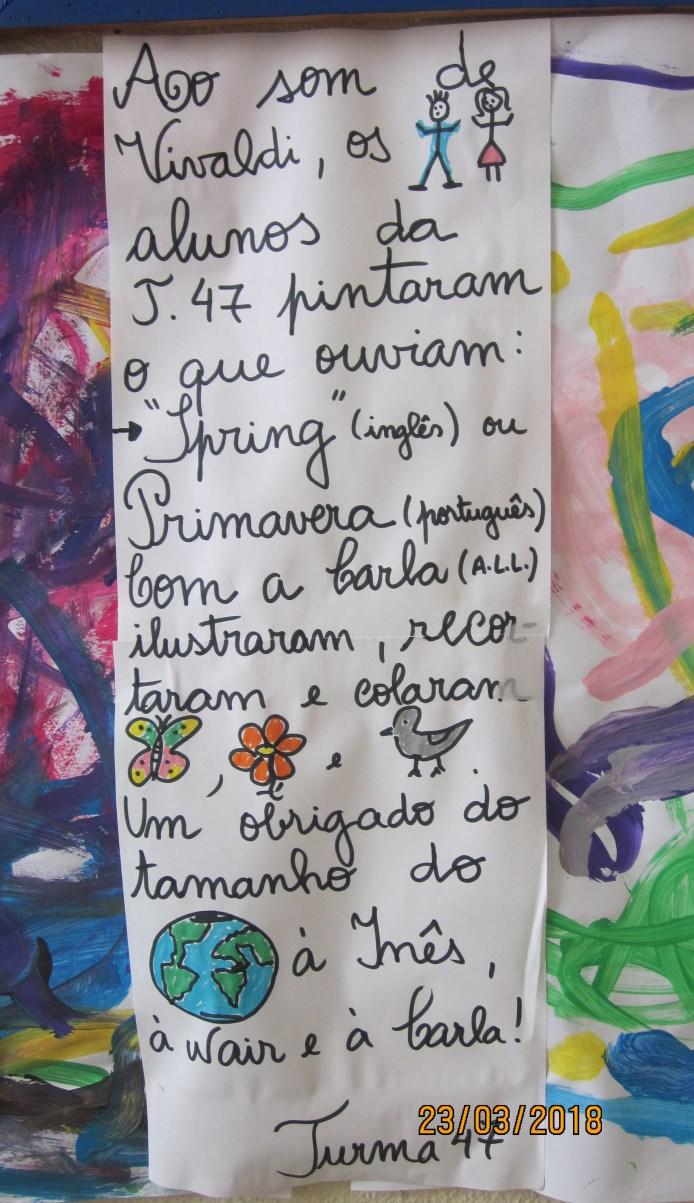 Ao som de
Vivaldi, os
alunos da
T. 47 pintaram
o que ouviam:
"Spring" (inglês) ou
Primavera (português)
Com a Carla (A.L.L.)
ilustraram, recor-
taram e colaram
, e
Um obrigado do
tamanho do
à Inês,
à Wair e à Carla!
Turma 47
23/03/2018